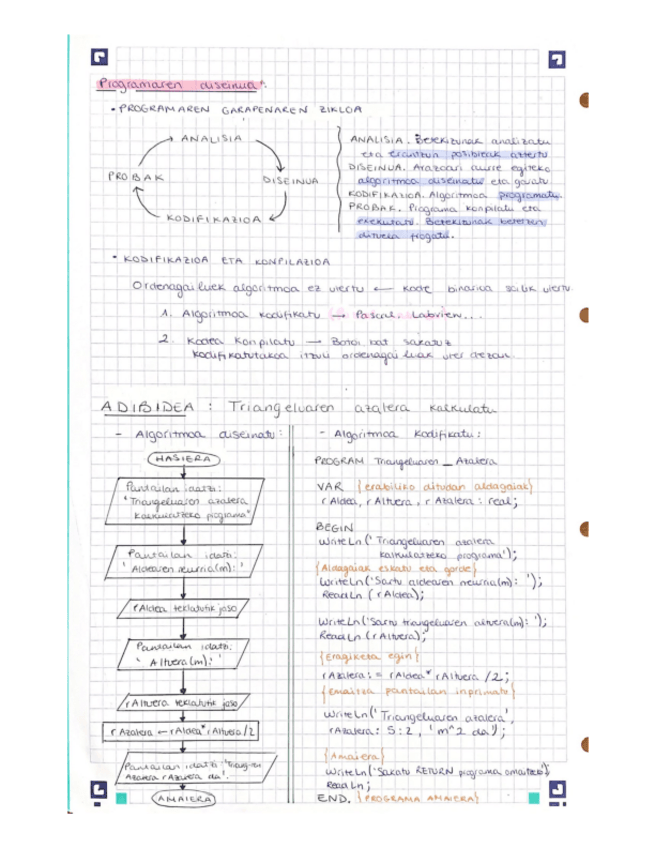 Programaren diseinua:
• PROGRAMAREN GARAPENAREN ZIKLOA
ANALISIA
DISEINUA
KODIFIKAZIOA
PROBAK
ANALISIA. Betekizunak analizatu
eta erantzun posibleak aztertu
DISEINUA. Arazoari aurre egiteko
algoritmoa diseinatu eta garatu
KODIFIKAZIOA. Algoritmoa programatu.
PROBAK. Programa konpilatu eta
exekutatu. Betekizunak betetzen
dituela frogatu.
• KODIFIKAZIOA ETA KONPILAZIOA
Ordenagailuek algoritmoa ez ulertu ← kode binarioa soilik ulertu
1. Algoritmoa kodifikatu → Pascal, Labview...
2. Kodea konpilatu → Botoi bat sakatuz
kodifikatutakoa itzuli ordenagailuak uler dezan.
ADIBIDEA : Triangeluaren azalera kalkulatu
- Algoritmoa diseinatu:
HASIERA
Pantailan idatzi:
'Triangeluaren azalera
kalkulatzeko programa'
Pantailan idatzi:
'Aldearen neurria(m):'
rAldea teklatutik jaso
Pantailan idatzi:
'Altuera(m):'
rAltuera teklatutik jaso
rAzalera ← rAldea*rAltuera/2
Pantailan idatzi:
Azalera rAzalera da'.
AMAIERA
- Algoritmoa kodifikatu:
PROGRAM Triangeluaren_Azalera
VAR {erabiliko ditudan aldagaiak}
rAldea, rAltuera, rAzalera : real;
BEGIN
WriteLn('Triangeluaren azalera
kalkulatzeko programa');
{Aldagaiak eskatu eta gorde}
WriteLn('Sartu aldearen neurria(m): ');
ReadLn (rAldea);
WriteLn('Sartu triangeluaren altuera(m): ');
ReadLn (rAltuera);
{Eragiketa egin}
rAzalera:= rAldea*rAltuera/2;
{Emaitza pantailan inprimatu}
WriteLn('Triangeluaren azalera',
rAzalera: 5:2, 'm^2 da');
{Amaiera}
WriteLn('Sakatu RETURN programa amaitzeko');
ReadLn;
END. {PROGRAMA AMAIERA}